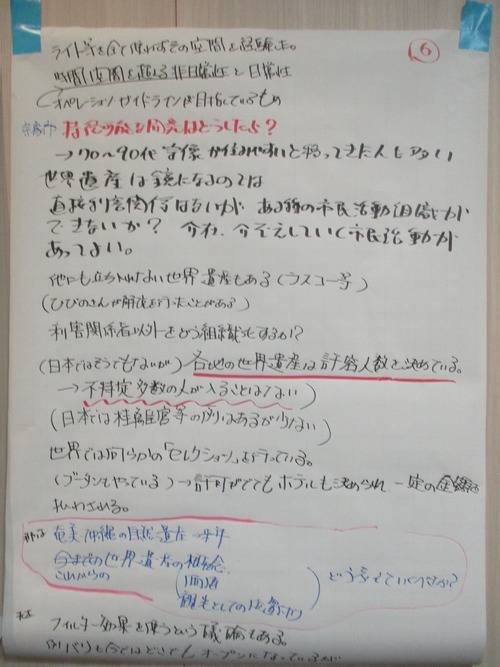 6
ライト等を全て使わずその空間を経験した。
時間、空間を超える非日常性と日常性
オペレーションサイドラインが目指しているもの
持続可能な開発はどうしたら?
→70〜90代 宗像が住みやすいと移ってきた人も多い
世界遺産は鏡になるのでは
直接利害関係はないが ある種の市民活動組織が
できないか? 今ない、今ぞえしていく市民活動が
あってよい。
他にも立ち入れない世界遺産もある(ラスコー等)
(ひびのさんが解説を行ったことがある)
利害関係者以外をどう組織化するか?
(日本ではそうでもないが) 各地の世界遺産は許容人数を決めている。
→不特定多数の人が入ることはない)
(日本では桂離宮等の例はあるが少ない)
世界では何らかの「セレクション」を行っている。
(ブータンでもやっている)→許可がでてもホテルも決められ 一定の金額も
払わされる。
奄美 沖縄の自然遺産→今年
今までの世界遺産の概念
これからの
観光としての位置づけ
どう考えていくべきか?
フィルター効果を使うという議論もある。